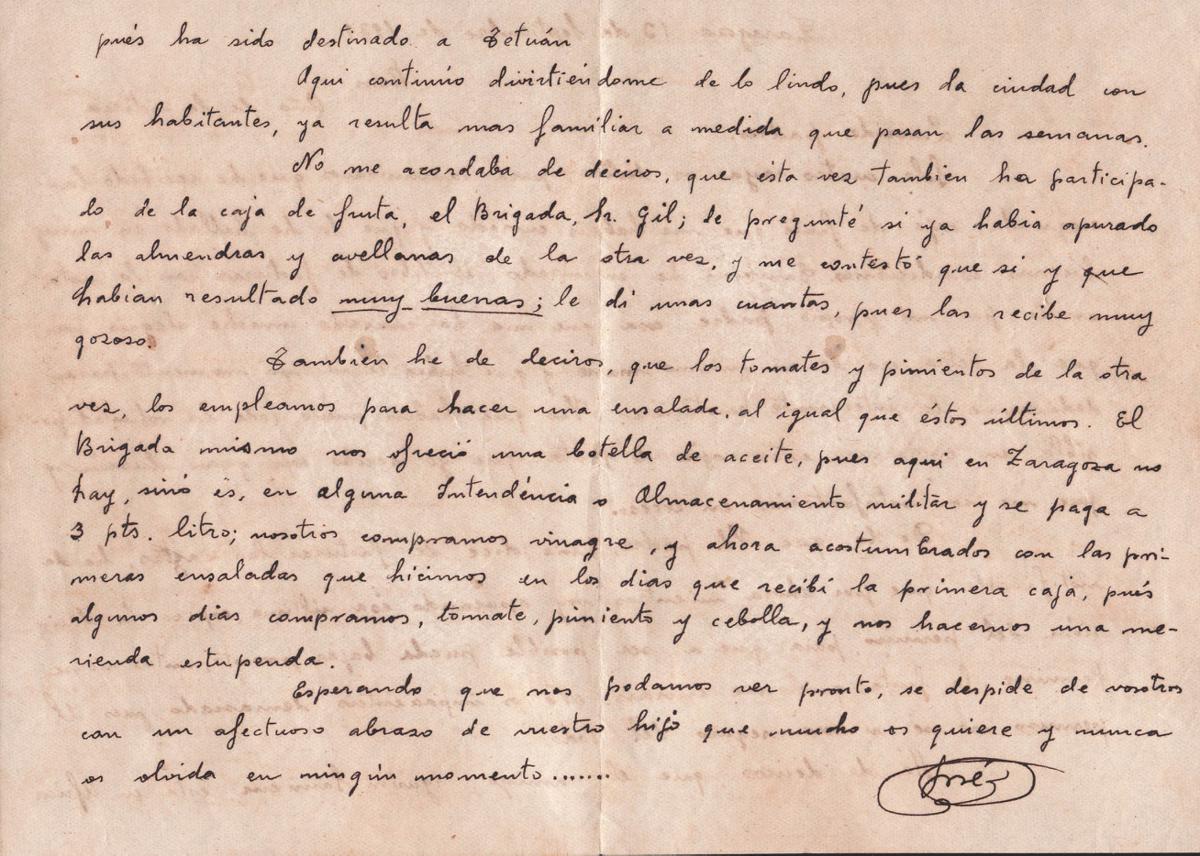 pués ha sido destinado a Tetuán
Aqui continúo divirtiéndome de lo lindo, pues la ciudad con
sus habitantes, ya resulta mas familiar a medida que pasan las semanas.
No me acordaba de deciros, que esta vez tambien ha participa-
do de la caja de fruta, el Brigada, Sr. Gil; le pregunté si ya habia apurado
las almendras y avellanas de la otra vez, y me contestó que si y que
habian resultado muy buenas; le di unas cuantas, pues las recibe muy
gozoso.
Tambien he de deciros, que los tomates y pimientos de la otra
vez, los empleamos para hacer una ensalada, al igual que éstos últimos. El
Brigada mismo nos ofreció una botella de aceite, pues aqui en Zaragoza no
hay, sinó és, en alguna Intendéncia o Almacenamiento militar y se paga a
3 pts. litro; nosotros compramos vinagre, y ahora acostumbrados con las pri-
meras ensaladas que hicimos en los dias que recibi la primera caja, pués
algunos dias compramos, tomate, pimiento y cebolla, y nos hacemos una me-
rienda estupenda.
Esperando que nos podamos ver pronto, se despide de vosotros
con un afectuoso abrazo de vuestro hijo que mucho os quiere y nunca
os olvida en ningún momento.......
José